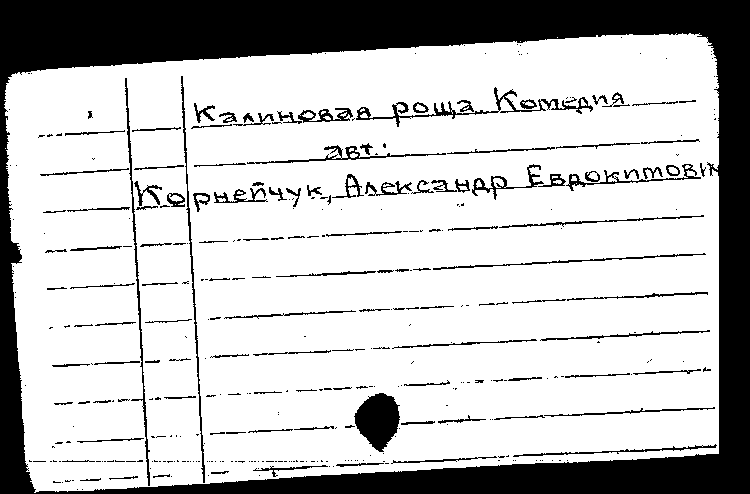 Калиновая роща. Комедия
авт.:
Корнейчук, Александр Евдокимович